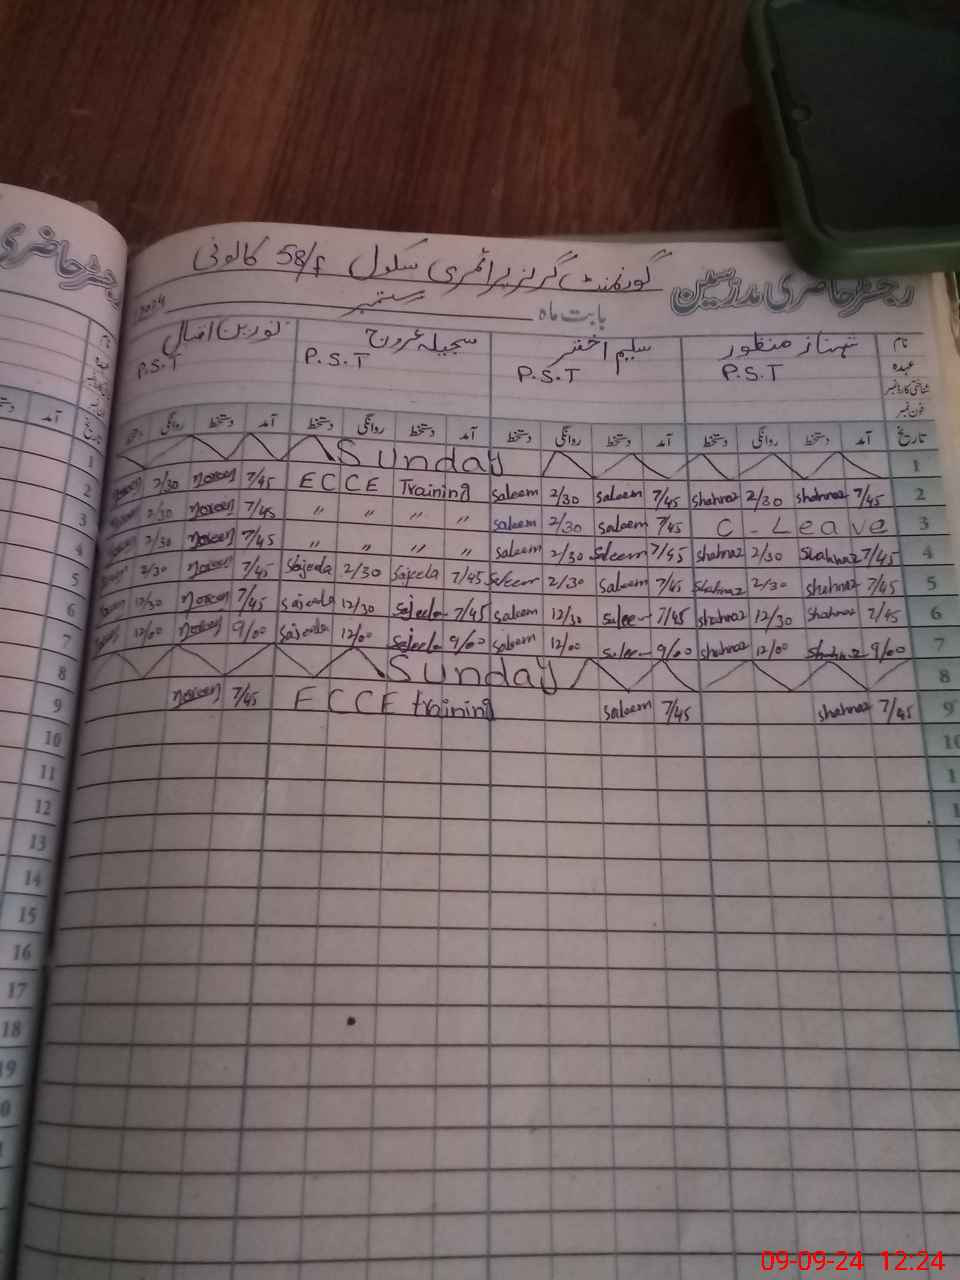 گورنمنٹ گرلز پرائمری سکول 58/f کالونی
رجسٹر حاضری مدرسین
بابت ماہ ستمبر 2024
نام شہناز منظور سلیم اختر سجیلہ عروج نورین اقبال
عہدہ P.S.T P.S.T P.S.T P.S.T
شناختی کارڈ نمبر
فون نمبر
تاریخ آمد دستخط روانگی دستخط آمد دستخط روانگی دستخط آمد دستخط روانگی دستخط آمد دستخط روانگی دستخط
Sunday 1
Noreen 2/30 Noreen 7/45 ECCE Training saleem 2/30 saleem 7/45 shahnaz 2/30 shahnaz 7/45 2
Noreen 2/30 Noreen 7/45 " " " " saleem 2/30 saleem 7/45 C-Leave 3
Noreen 2/30 Noreen 7/45 " " " " saleem 2/30 saleem 7/45 shahnaz 2/30 shahnaz 7/45 4
Noreen 2/30 Noreen 7/45 Sajeela 2/30 Sajeela 7/45 saleem 2/30 saleem 7/45 shahnaz 2/30 shahnaz 7/45 5
Noreen 12/30 Noreen 7/45 Sajeela 12/30 Sajeela 7/45 saleem 12/30 saleem 7/45 shahnaz 12/30 shahnaz 7/45 6
Noreen 12/00 Noreen 9/00 Sajeela 12/00 Sajeela 9/00 saleem 12/00 saleem 9/00 shahnaz 12/00 shahnaz 9/00 7
Sunday 8
Noreen 7/45 ECCE training saleem 7/45 shahnaz 7/45 9
10
11
12
13
14
15
16
17
18
19
رجسٹر حاضری
آمد
1
2
3
4
5
6
7
8
9
10
09-09-24 12:24